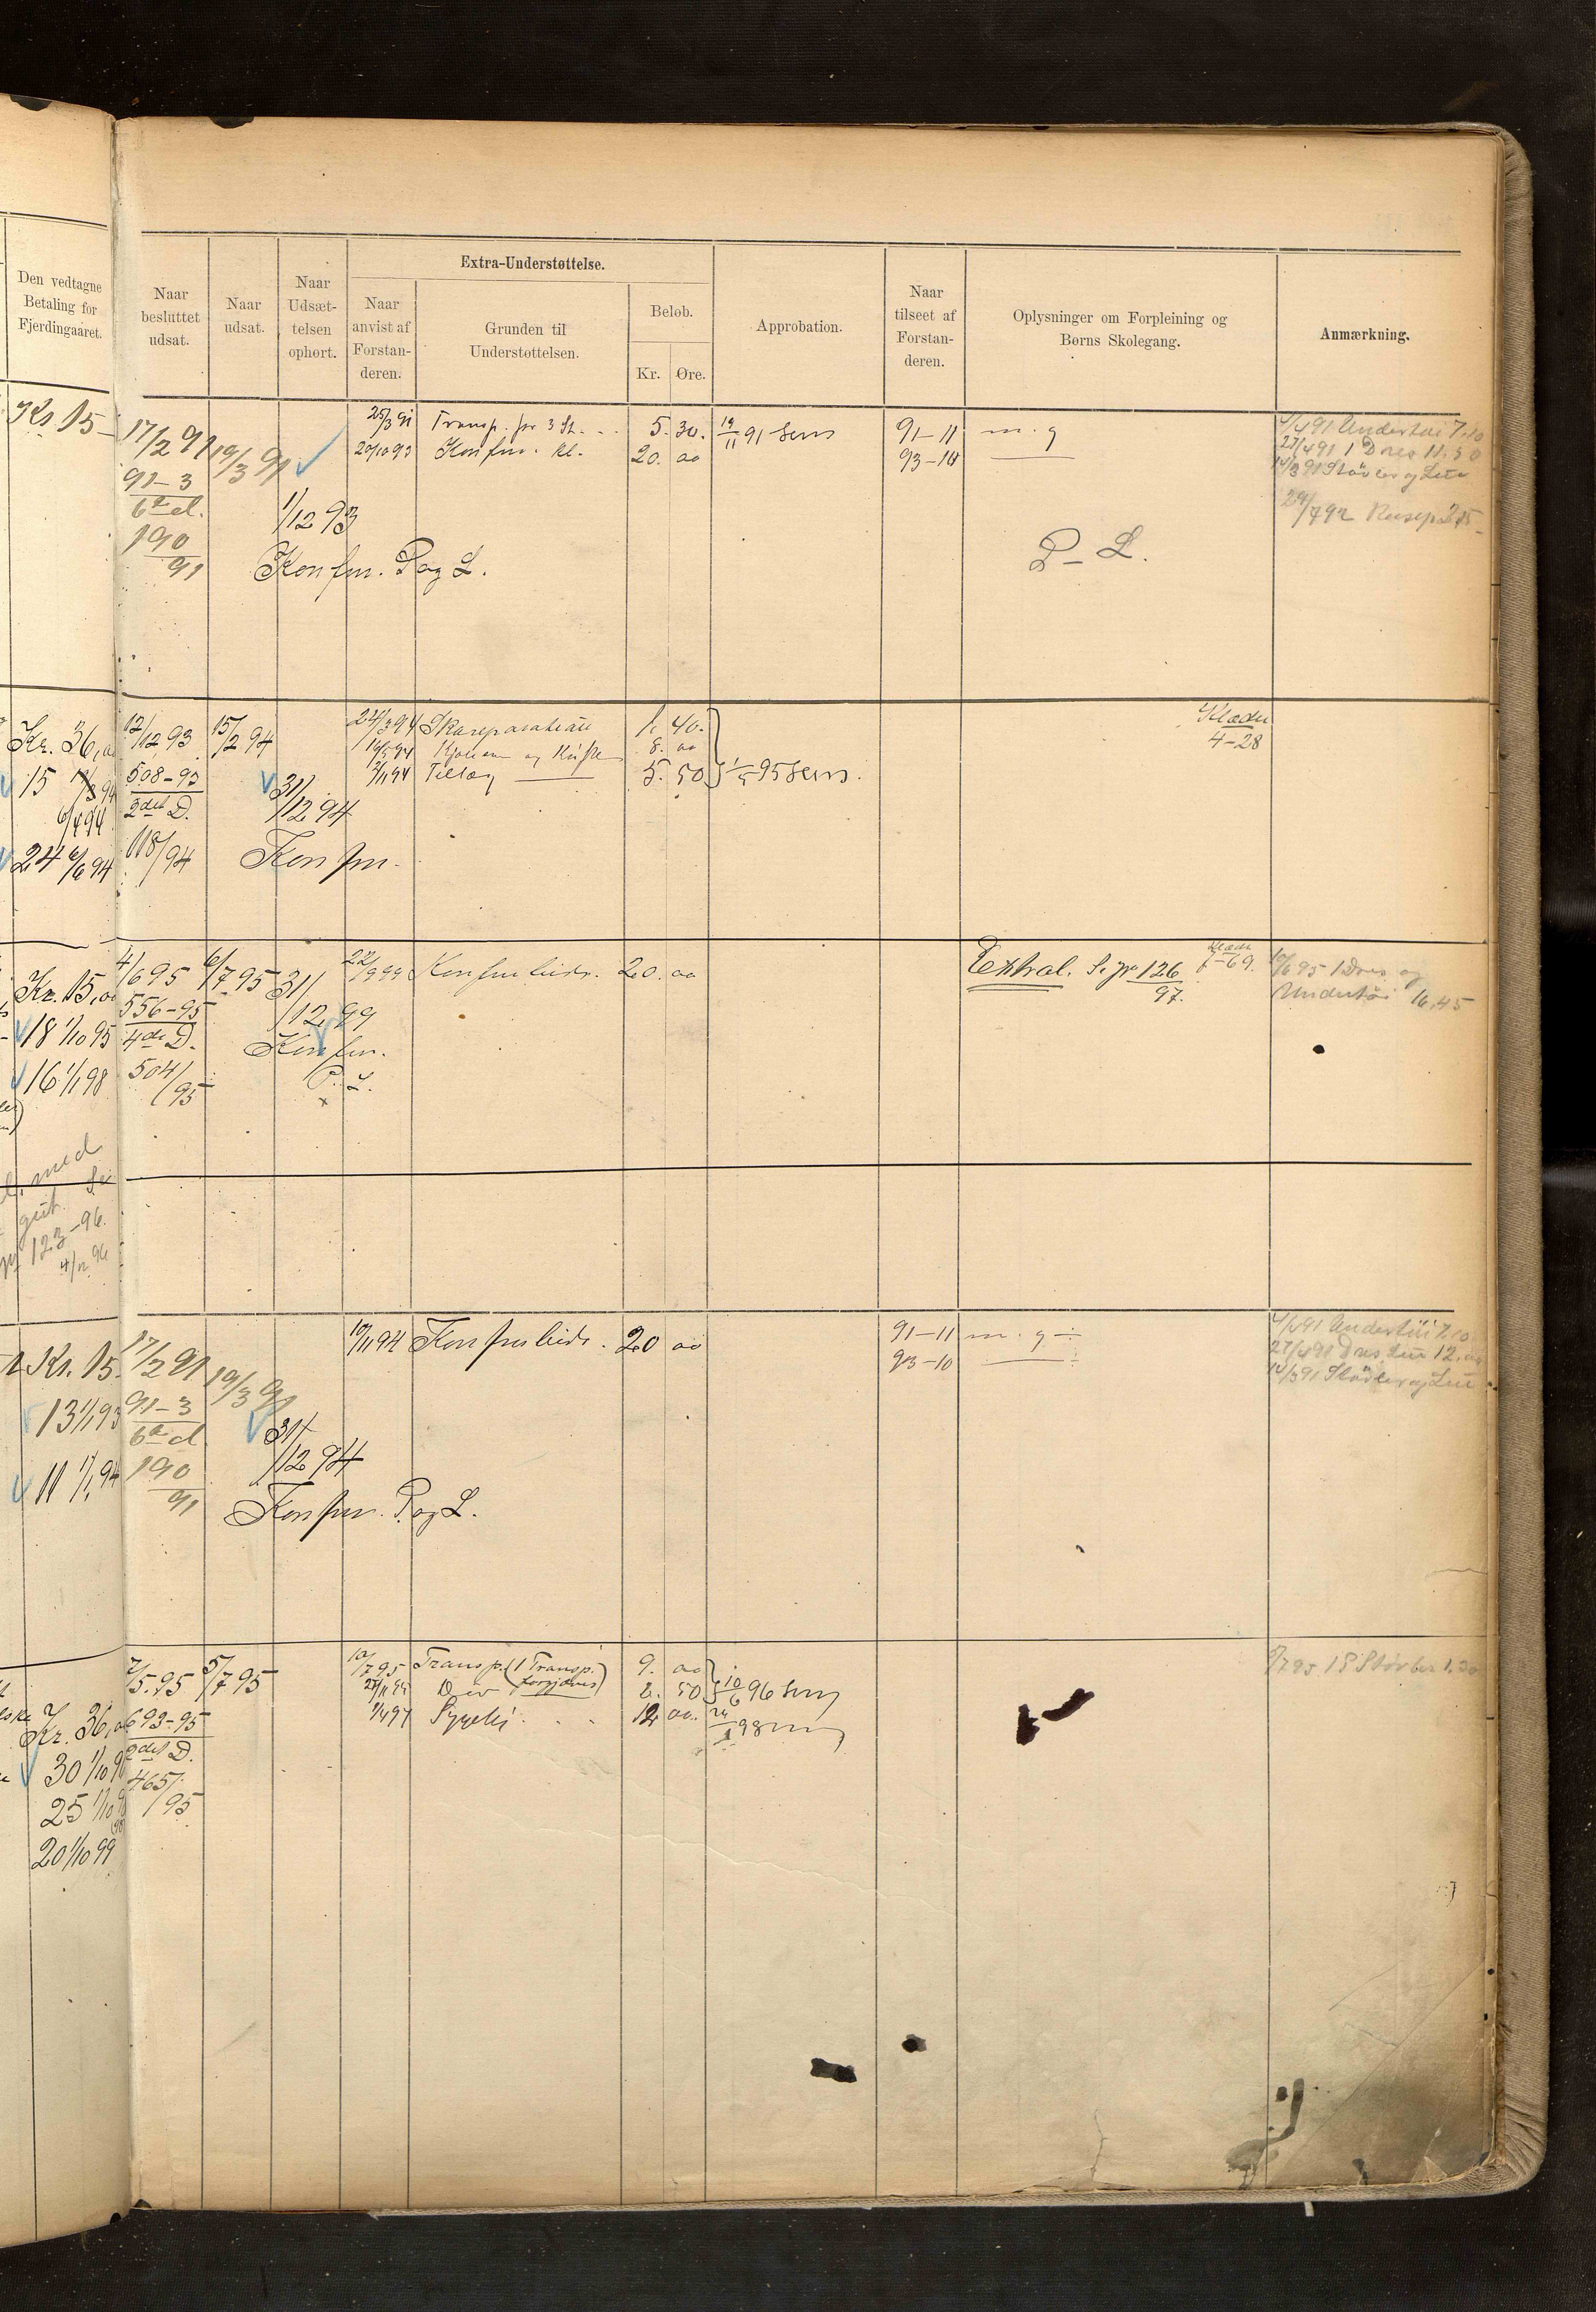 Den vedtagne
Betaling for
Fjerdingaaret.
Naar
besluttet
udsat.
Naar
udsat.
Naar
Udsæt-
telsen
ophørt.
Extra-Understøttelse.
Naar
anvist af
Forstan-
deren.
Grunden til
Understøttelsen.
Beløb.
Kr. Øre.
Approbation.
Naar
tilseet af
Forstan-
deren.
Oplysninger om Forpleining og
Børns Skolegang.
Anmærkning.
Kr. 15-
17/2 91
91-3
6te d.
190
91
19/3 91
1/12 93
Konfm. P og L.
25/3 91 Transp. for 3 St. 5. 30. 19/11 91
20/10 93 Konfm. Kl. 20. 00
91-11 m. g
93-10
P-L.
4/4 91 Undertøi 7.10
27/4 91 1 Dres 11.50
Støvler og Lue
24/7 92
Kr. 36,00
15
6/4 94
24 6/6 94
12/12 93
508-93
2det D.
118/94
15/2 94
31/12 94
Konfm.
24/3 94 Skoreparation 1. 40.
8. 00
2/11 94 Tillæg 5. 50 95
Klæder
4-28
Kr. 15,00
18 1/10 95
16 1/1 98
4/6 95
556-95
4de D.
504/95
6/7 95
31/12 99
Konfm.
P. L.
22/9 99 Konfm bidr. 20. 00
Extral. S. 126
97.
Klæder
7-69.
10/6 95 1 Dres og
Undertøi 16,45
med
gut.
123-96.
4/12 96
Kr. 15.
13 1/1 93
11 1/1 94
17/2 91
91-3
6te d
190
91
19/3 91
31/12 94
Konfm. P. og L.
10/11 94 Konfm bidr. 20 00
91-11 m. g
93-10
4/4 91 Undertøi 7.10
27/4 91 Dres, Lue 12,00
14/3 91 Støvler og Lue
Kr. 36,00
30 1/10 96
25 1/10 98
(98)
20 1/10 99
7/5 95
693-95
2det D.
465/95
5/7 95
10/7 95 Transp. (1 Transp. 9. 00 10/6 96
2. 50
1/4 97 12 00. 98
7 95 1 P Støvler